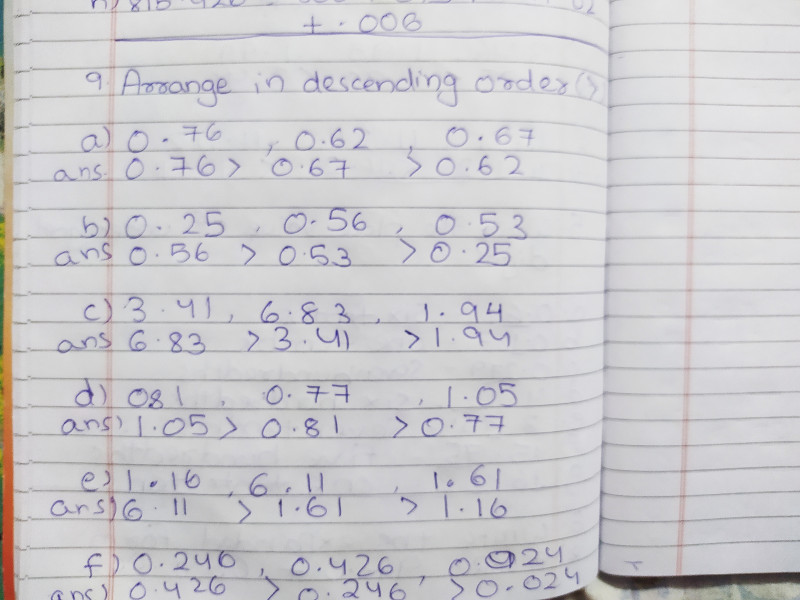 + .006
9 Arrange in descending order (>)
a) 0.76 , 0.62 , 0.67
ans. 0.76 > 0.67 > 0.62
b) 0.25 , 0.56 , 0.53
ans 0.56 > 0.53 > 0.25
c) 3.41 , 6.83 , 1.94
ans 6.83 > 3.41 > 1.94
d) 081 , 0.77 , 1.05
ans) 1.05 > 0.81 > 0.77
e) 1.16 , 6.11 , 1.61
ans) 6.11 > 1.61 > 1.16
f) 0.246 , 0.426 , 0.024
ans) 0.426 > 0.246 > 0.024